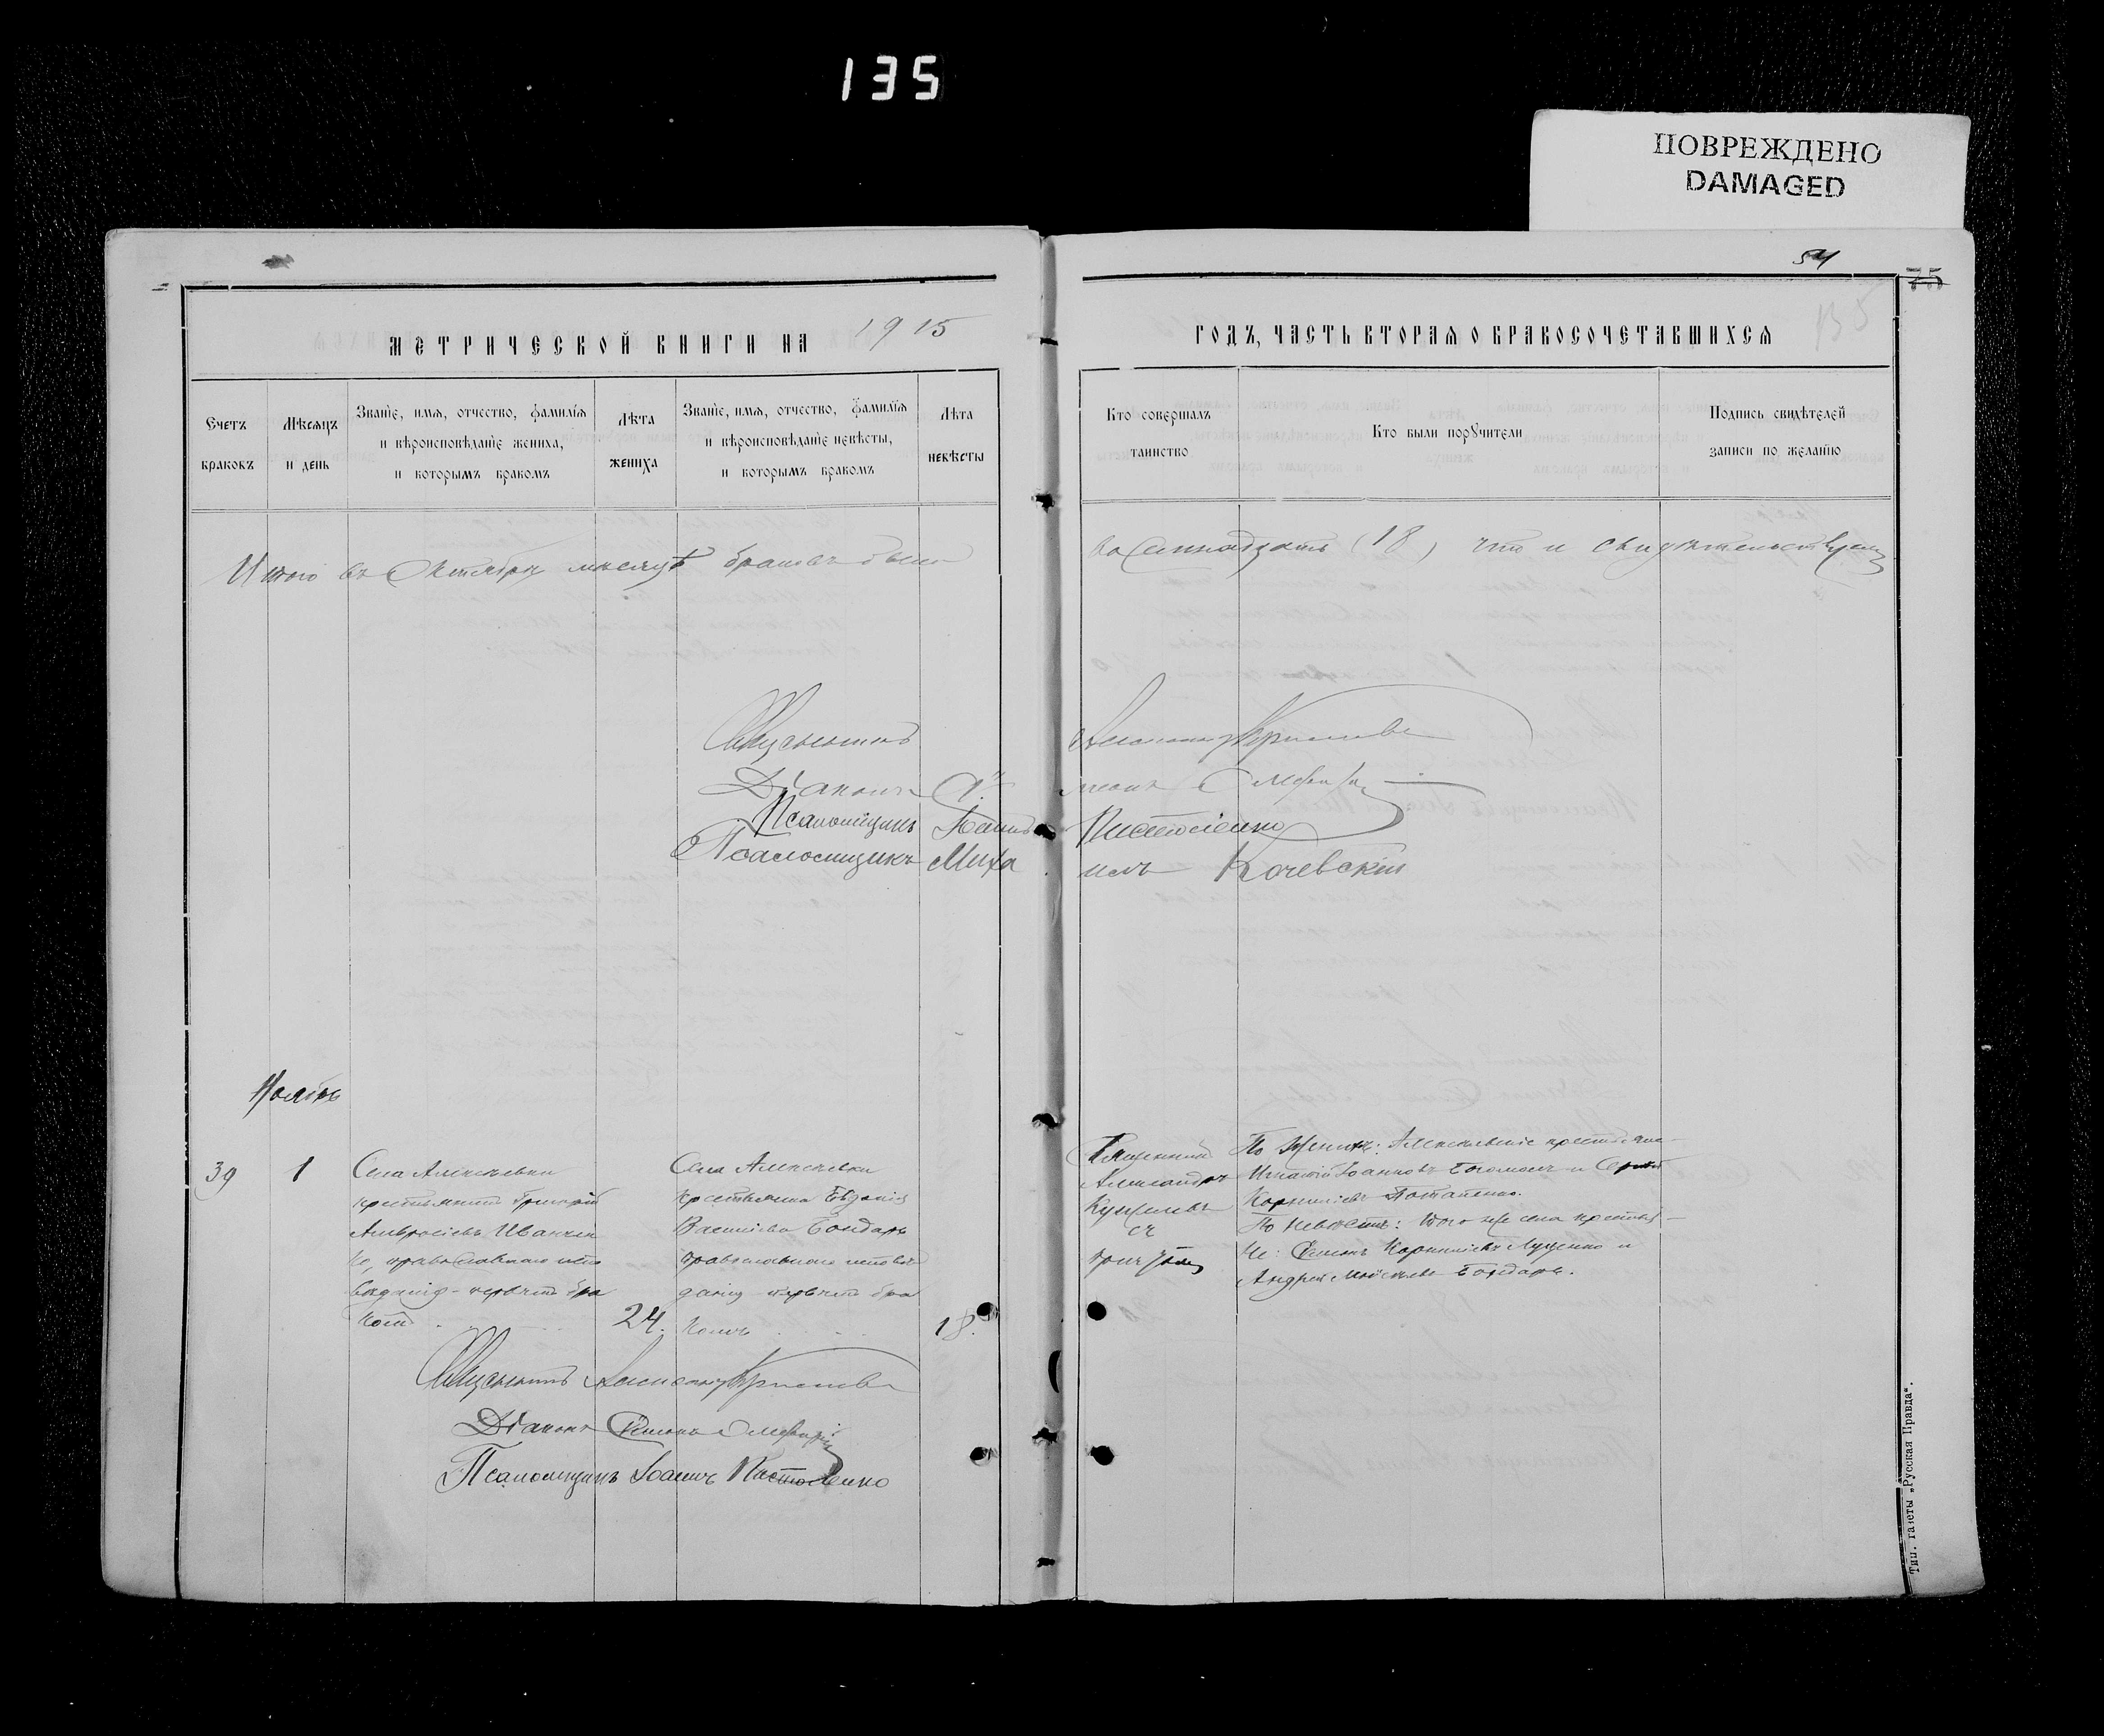 135
ПОВРЕЖДЕНО
DAMAGED
54
75
135
МЕТРИЧЕСКОЙ КНИГИ НА 1915
ГОДЪ, ЧАСТЬ ВТОРАЯ О БРАКОСОЧЕТАВШИХСЯ
Счетъ браковъ
Мѣсяцъ и день
Званіе, имя, отчество, фамилія
и вѣроисповѣданіе жениха,
и которымъ бракомъ
Лѣта жениха
Званіе, имя, отчество, фамилія
и вѣроисповѣданіе невѣсты,
и которымъ бракомъ
Лѣта невѣсты
Кто совершалъ
таинство
Кто были поручители
Подпись свидѣтелей
записи по желанію
Итого въ Октябрѣ мѣсяцѣ браковъ было
восемнадцать (18) что и свидѣтельствуемъ
Священникъ Александръ
Діаконъ Симеонъ
Псаломщикъ Іоаннъ
Псаломщикъ Михаилъ Кочевскій
Ноябрь
39
1
Села Алексѣевки
крестьянинъ Григорій
Амвросіевъ Иванчен
ко, православнаго испо
вѣданія - первымъ бра
комъ
24.
Села Алексѣевки
крестьянка Евдокія
Василіева Бондарь
православнаго исповѣ
данія первымъ бра
комъ
18.
Священникъ
Александръ
съ
причтомъ
По женихѣ: Алексѣевскіе крестьяне
Игнатій Іоанновъ Богомолъ и Сергій
Корниліевъ Потапенко.
По невѣстѣ: того же села крестья-
не: Симеонъ Корниліевъ Луценко и
Андрей Моисеевъ Бондарь.
Священникъ Александръ
Діаконъ Симеонъ
Псаломщикъ Іоаннъ
Тип. газеты „Русская Правда“.